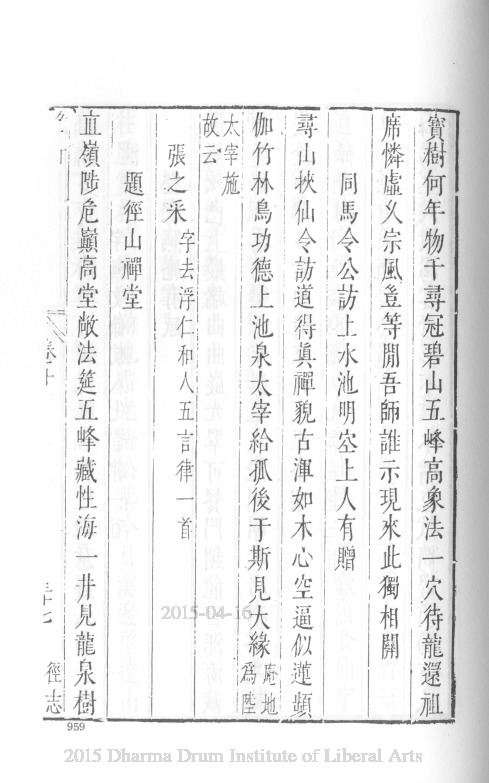 寶樹何年物千尋冠碧山五峰高象法一穴待龍還祖
席憐虛久宗風豈等閒吾師誰示現來此獨相關
同馬令公訪上水池明空上人有贈
尋山挾仙令訪道得眞禪貌古渾如木心空逼似蓮頻
伽竹林鳥功德上池泉太宰給孤後于斯見大緣庵地爲陸
太宰施
故云
張之采字去浮仁和人五言律一首
題徑山禪堂
直嶺陟危巔高堂敞法筵五峰藏性海一井見龍泉樹
卷十
三十七
徑志
959
2015-04-16
2015 Dharma Drum Institute of Liberal Arts